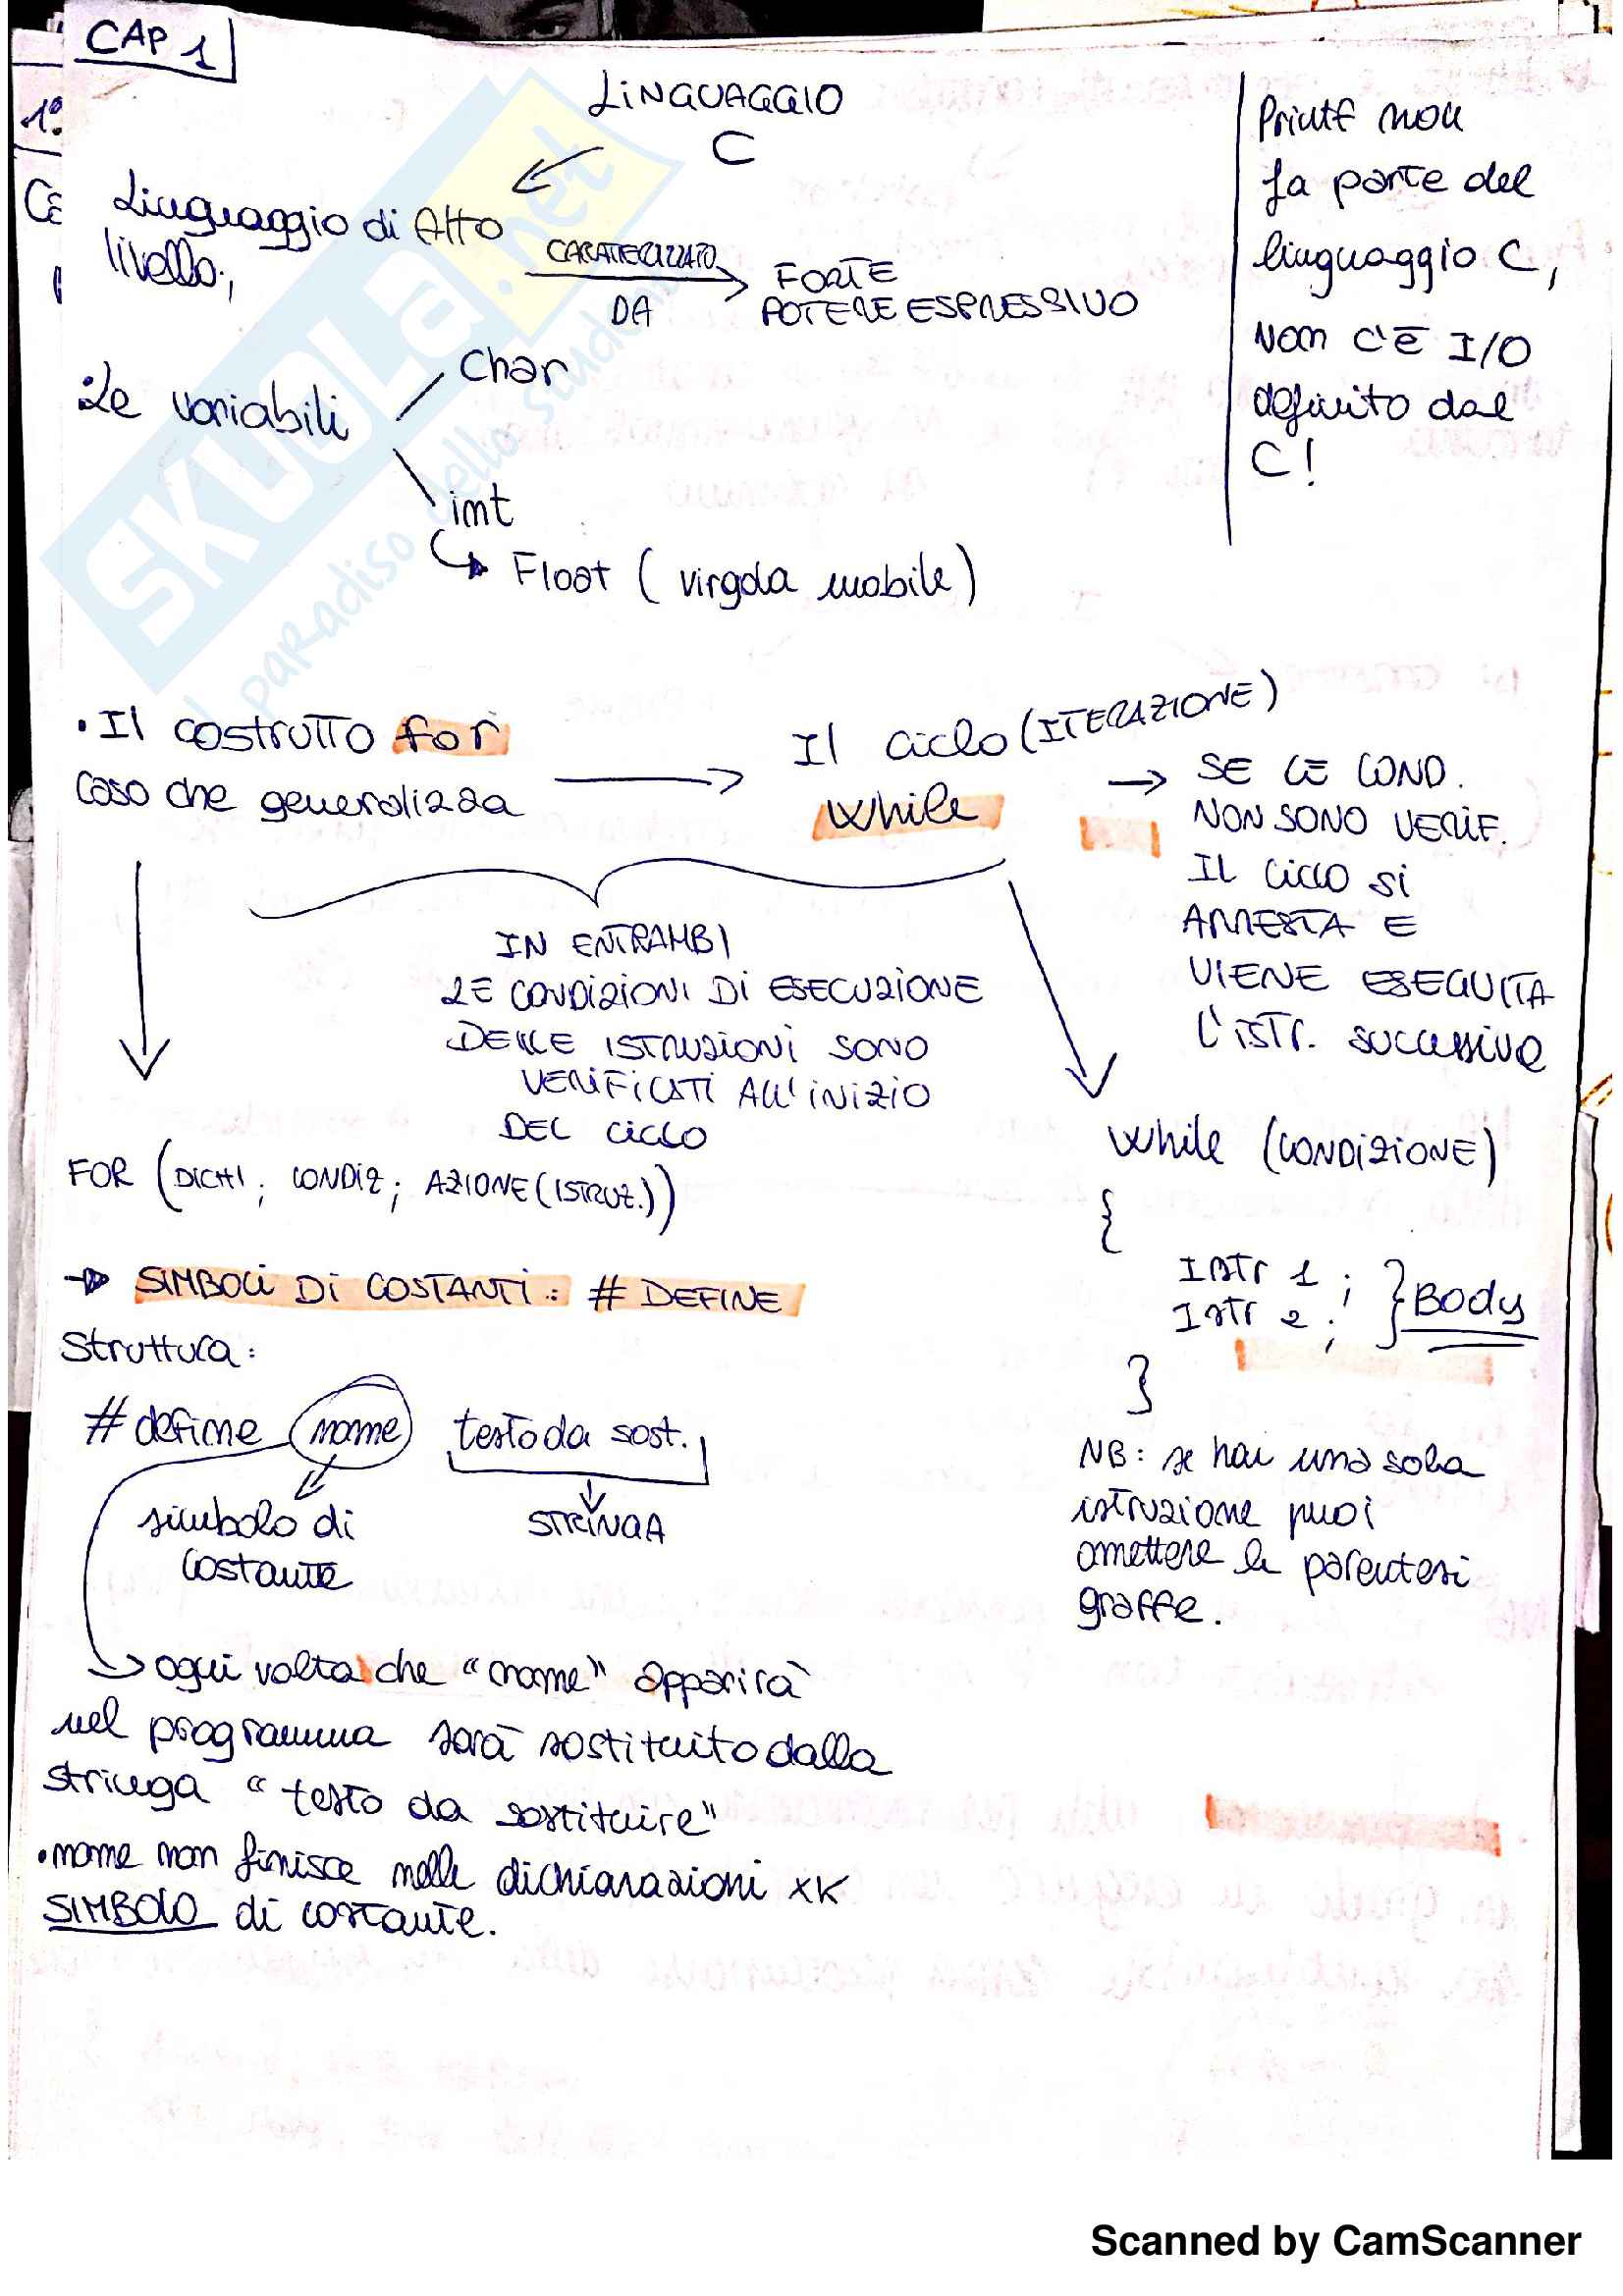 CAP 1
1º
LINGUAGGIO
C
Linguaggio di Alto
livello;
CARATTERIZZATO
DA
FORTE
POTERE ESPRESSIVO
Printf non
fa parte del
linguaggio C,
NON C'È I/O
definito dal
C!
• Le variabili
Char
int
Float ( virgola mobile )
SKUOLA.net
il paradiso dello
• Il costrutto for
Caso che generalizza
Il ciclo (ITERAZIONE)
While
SE LE COND.
NON SONO VERIF.
IL CICLO SI
ARRESTA E
VIENE ESEGUITA
L'ISTR. successiva
IN ENTRAMBI
LE CONDIZIONI DI ESECUZIONE
DELLE ISTRUZIONI SONO
VERIFICATI ALL'INIZIO
DEL CICLO
FOR (DICHI; CONDIZ; AZIONE (ISTRUZ.))
While (CONDIZIONE)
{
Istr 1 ;
Istr 2 ;
} Body
}
NB: se hai una sola
istruzione puoi
omettere le parentesi
graffe.
SIMBOLI DI COSTANTI: # DEFINE
Struttura:
# define nome testo da sost.
simbolo di
costante
STRINGA
ogni volta che "nome" apparirà
nel programma sarà sostituito dalla
stringa "testo da sostituire"
• nome non finisce nelle dichiarazioni xK
SIMBOLO di costante.
Scanned by CamScanner